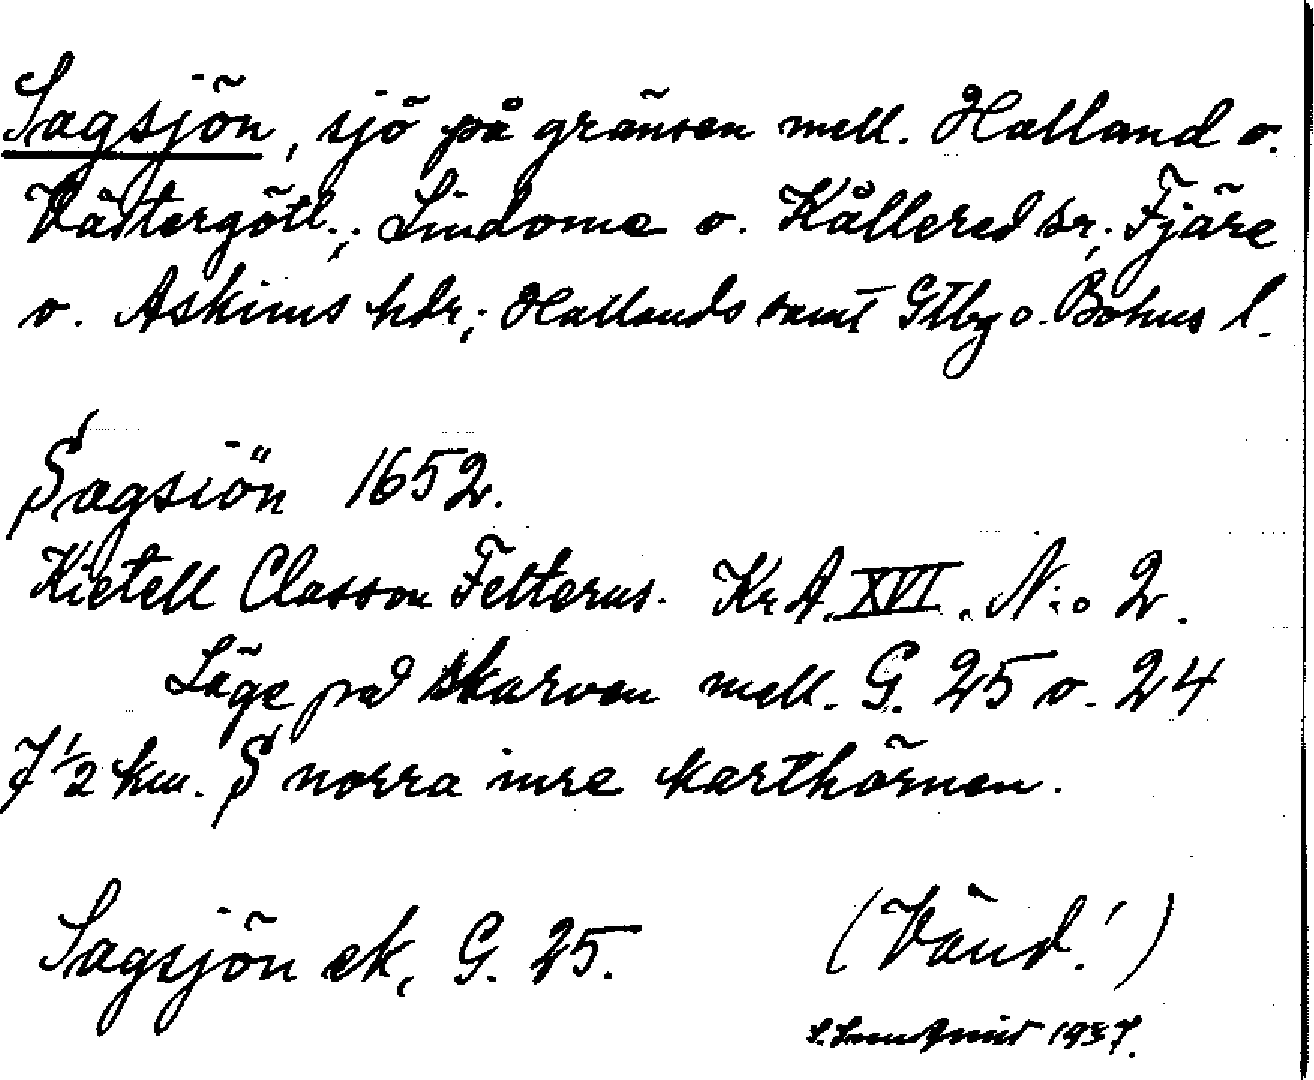 Sagsjön, sjö på gränsen mell. Halland o.
Västergötl.; Lindome o. Kållered sr; Fjäre
o. Askims hdr; Hallands samt Gtbg o. Bohus l.
Sagsiön 1652.
Kietell Classon Felterus. Kr.A. XVI. N:o 2.
Läge på skarven mell. G. 25 o. 24
7 1/2 km. S norra inre karthörnen.
Sagsjön ek, G. 25.
(Vänd!)
1937.